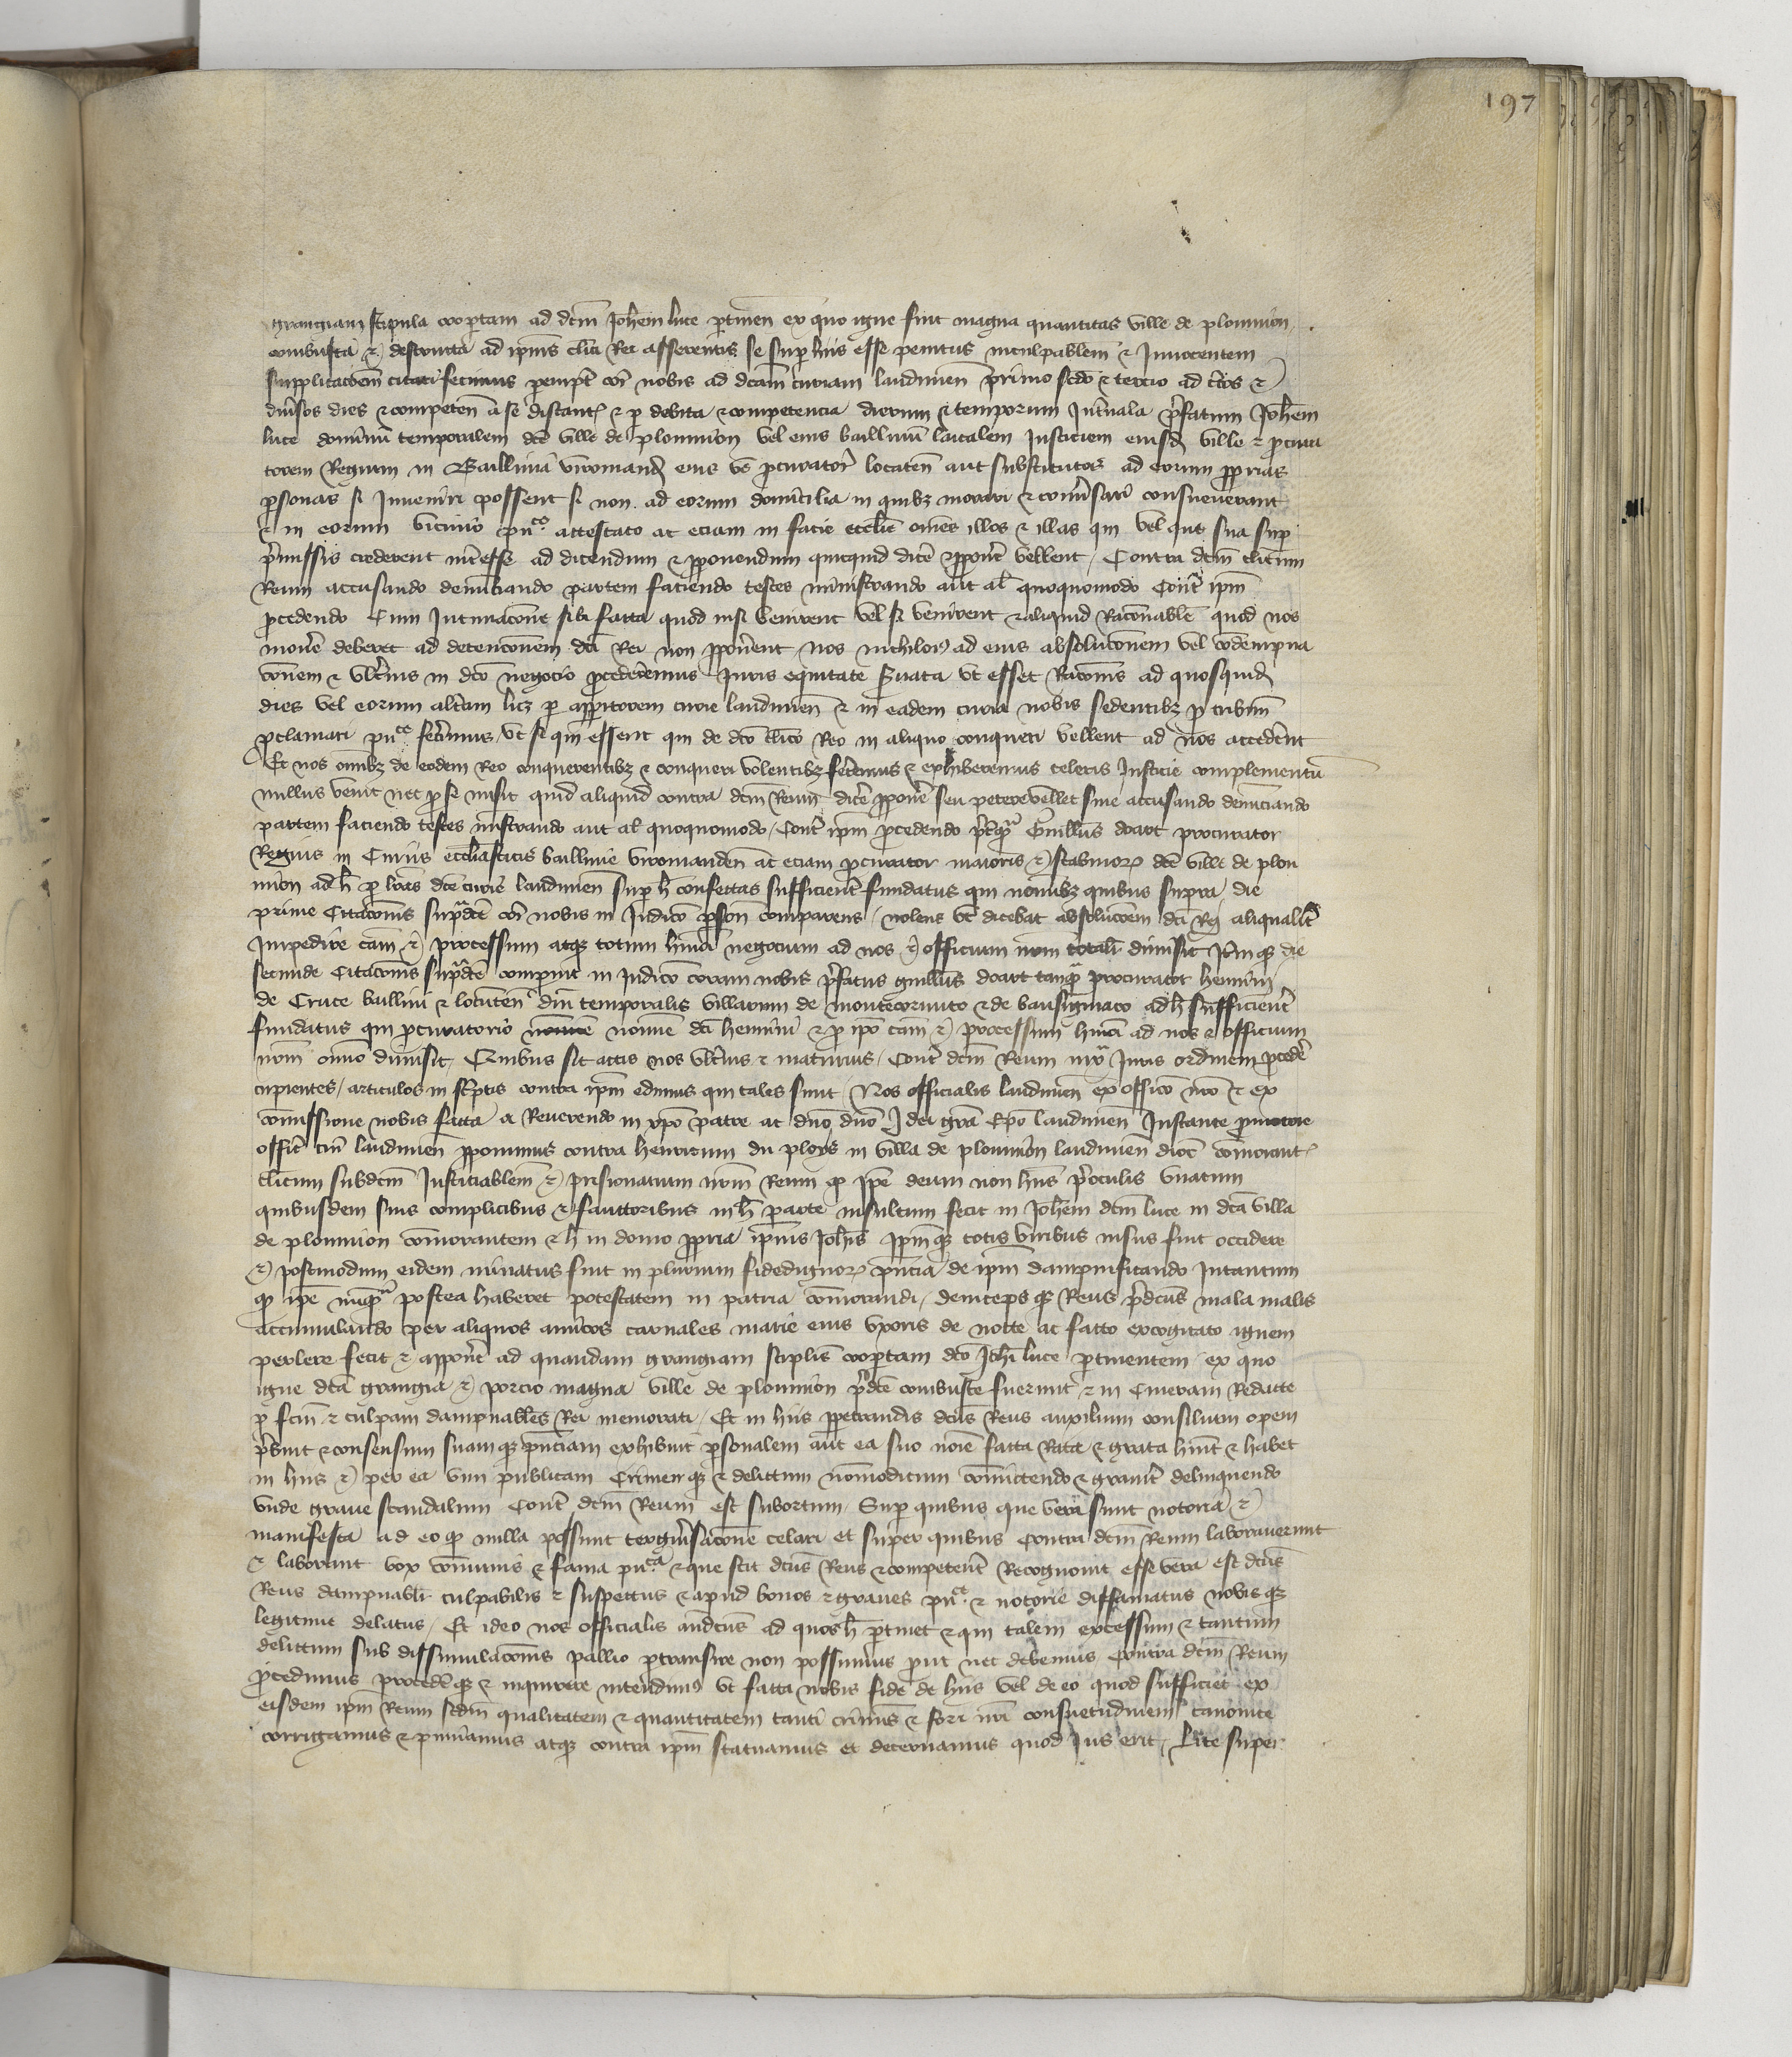 197
grangiam stipula coopertam ad dcm Johem luce ptinen ex quo igne fuit magna quantitas ville de plomion
combusta et destructa ad ipius clici Rei asserentis se sup hiis esse penitus inculpabilem et Innocentem
supplicacoem citari fecimus pempt cor nobis ad dcam curiam laudunen primo scdo et tercio ad ctos et
divsos dies et competen a se distantes et p debita et competencia dierum et temporum Intvala pfatum Johem
luce dominu temporalem dce ville de plomion vel eius baillivu laicalem Justiciem eiusd ville et pcura
torem Regium in Baillivia viromand eius ve pcurator locaten aut substitutos ad eorum pprias
psonas si Inveniri possent si non ad eorum domicilia in quibz morari et convsari consueverant
et in eorum vicinio puce attestato ac eciam in facie ecclie omes illos et illas qui vel que sua sup
pmissis crederent intesse ad dicendum et pponendum quicquid dice et ppone vellent / Contra dcm clicum
Reum accusando denuciando partem faciendo testes ministrando aut al quoquomodo Cont ipm
pcedendo Cum Intimacone sibi facta quod nisi venirent vel si venirent et aliquid Raconable quod nos
move deberet ad detenconem dci Rei non pponerent nos nichilos ad eius absoluconem vel condempna
conem et ultius in dco negocio pcederemus Juris equitate svata ut esset Raconis ad quosquid
dies vel eorum altam licz p apparitorem curie laudunen et in eadem curia nobis sedentibz p tribun
pclamari puce fecimus / ut si qui essent qui de dco clico Reo in aliquo conqueri vellent ad nos accederent
Et nos omibz de eodem Reo conquerentibz et conqueri volentibz faceremus et exhiberemus celeris Justicie complementu
nullus venit nec p se misit quid aliquid contra dcm Reum dice ppone seu petere vellet sive accusando denuciando
partem faciendo testes mistrando aut al quoquomodo / Cont ipm pcedendo ptqua Guillus doart procurator
Regius in Curiis ecclesiasticis baillivie viromanden ac eciam pcurator maioris et scabinor dce ville de plou
mion ad h p lras dce curie laudunen sup h confectas sufficient fundatus qui noibz quibus supra die
prime Citaconis supdce cor nobis in Judico pson comparens / nolens ut dicebat absolucoem dci Rei aliqualit
Impedire cam et processum atqz totum huoi negocium ad nos et officium nrm totalit dimisit Itemqz die
secunde Citaconis supdce compuit in Judico coram nobis pfatus guillus doart tanqua procurator hemini
de Cruce ballivi et locuten dni temporalis villarum de montecornuto et de bausigniaco ad h sufficient
fundatus qui pcuratorio nomine dci hemini et p ipo cam et processum huoi ad nos et officium
nrm omio dimisit / Quibus sic actis nos ultius et maturius / Cont dcm Reum iuxta Juris ordinem pcede
cupientes / articulos in scptis contra ipm edimus qui tales sunt / Nos officialis laudunen ex officio nro et ex
comissione nobis facta a Reverendo in xpo patre ac dno dno J dei gra Epo laudunen Instante pmotore
offic cur laudunen pponimus contra henricum du ploys in villa de plomion laudunen dioc comorante
clicum subdcm Justiciablem et prisionarium nrm Reum qp ipe deum non hns p oculis unacum
quibusdem suis complicibus et fauttoribus in h parte insultum fecit in Johem dcm luce in dca villa
de plomion comorantem et h in domo ppria ipius Johis ipmqz totis viribus nisus fuit occidere
et postmodum eidem minatus fuit in plurium fidedignor pncia de ipm dampnificando Intantum
qp ipe nuqua postea haberet potestatem in patria comorandi / deincepsqz Reus pdcus mala malis
accumulando per aliquos amicos carnales marie eius uxoris de nocte ac facto excogitato ignem
perlere fecit et appone ad quandam grangiam stiplis coopertam dco Johi luce ptinentem ex quo
igne dca grangia et porcio magna ville de plomion pdce combuste fuerunt et in Cineram Redacte
p fcm et culpam dampnabiles Rei memorati / Et in hiis ppetrandis dcus Reus auxilium consilium opem
pbuit et consensum suamqz pnciam exhibuit psonalem aut ea suo noie facta Rata et grata huit et habet
in hiis et per ea vim publicam Crimenqz et delictum nomodicum comittendo et gravit delinquendo
unde grave scandalum Cont dcm Reum est subortum / Sup quibus que vera sunt notoria et
manifesta ad eo qp nulla possunt tergivsacone celari et super quibus contra dcm Reum laboraverunt
et laborant vox comunis et fama puca et que scit dcus Reus et competent Recognovit esse vera est dcus
Reus dampnablr culpabilis et suspectus et apud bonos et graves puce et notorie diffamatus nobisqz
legitime delatus / Et ideo nos officialis andcus ad quos h ptinet et qui talem excessum et tantum
delictum sub dissimulaconis pallio ptransire non possumus prout nec debemus Contra dcm Reum
pcedimus procedeqz et inquirere intendimus ut facta nobis fide de hiis vel de eo quod sufficiet ex
eisdem ipm Reum scdm qualitatem et quantitatem tanti criminis et fori nri consuetudinem canonice
corrigamus et puniamus atqz contra ipm statuamus et decernamus quod Jus erit / Lite super